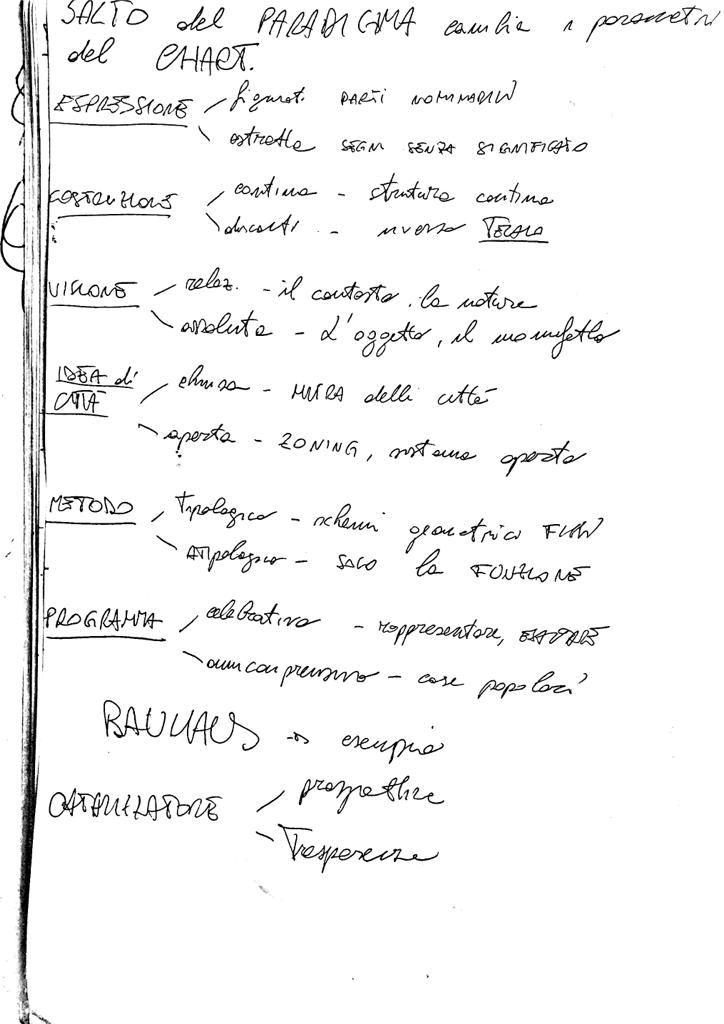 SALTO del PARADIGMA cambia i parametri
del CHART.
ESPRESSIONE figurat. PARTI NOMINABILI
astratta SEGNI SENZA SIGNIFICATO
COSTRUZIONE continua - struttura continua
- inversa TELAIO
VISIONE relaz. - il contesto, la natura
assoluta - L'oggetto, il manufatto
IDEA di
CITTÀ chiusa - MURA delle città
aperta - ZONING, sistema aperto
METODO Tipologico - schemi geometrici
ATipologico - SOLO la FUNZIONE
PROGRAMMA celebrativo - rappresentare,
omnicomprensivo - case popolari
BAUHAUS → esempio
CATALIZZATORE prospettive
Trasparenze